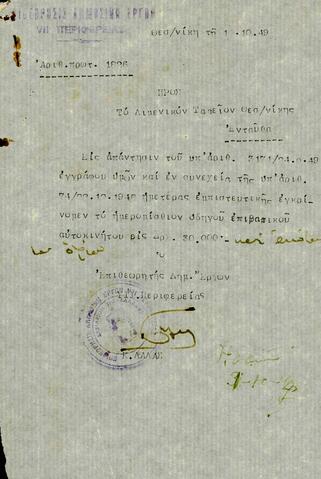 ΕΠΙΘΕΩΡΗΣΙΣ ΔΗΜΟΣΙΩΝ ΕΡΓΩΝ
VII ΠΕΡΙΦΕΡΕΙΑΣ
Θεσ/νίκη τῇ 1.10.49
Ἀριθ.πρωτ. 1826
ΠΡΟΣ
Τό Λιμενικόν Ταμεῖον Θεσ/νίκης
Ἐνταῦθα
Εἰς ἀπάντησιν τοῦ ὑπ'ἀριθ. 3171/24.9.49
ἐγγράφου ὑμῶν καί ἐν συνεχείᾳ τῆς ὑπ'ἀριθ.
1948 ἡμετέρας ἐμπιστευτικῆς ἐγκρί
νομεν τό ἡμερομίσθιον ὁδηγοῦ ἐπιβατικοῦ
αὐτοκινήτου εἰς δρχ. 30.000.-
Ὁ
Ἐπιθεωρητής Δημ. Ἔργων
Περιφερείας